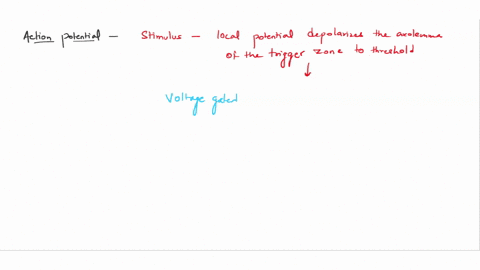 Action potential — Stimulus — local potential depolarizes the axolemma
of the trigger zone to threshold
↓
Voltage gated